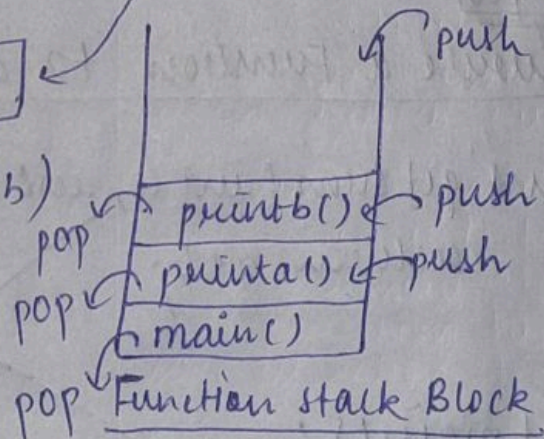 push
b)
printb()
push
pop
printa()
push
pop
main()
pop
Function Stack Block